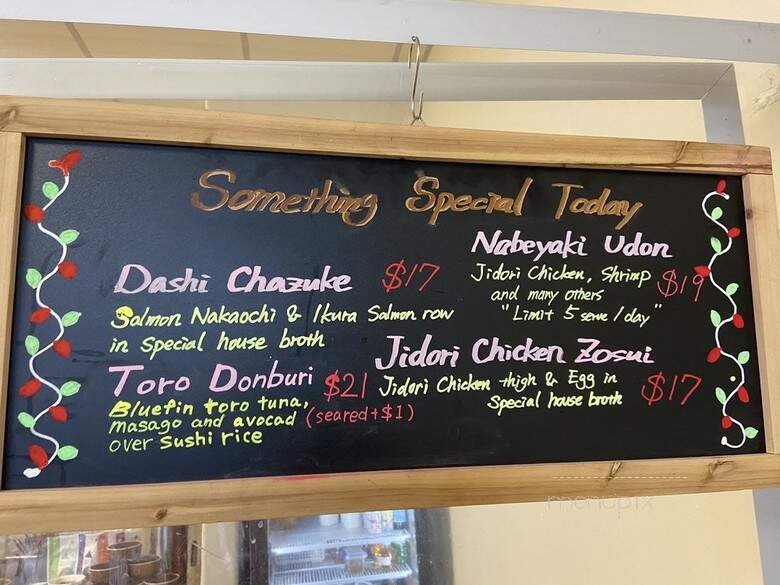 Something Special Today
Dashi Chazuke $17
Salmon Nakaochi & Ikura Salmon row
in special house broth
Toro Donburi $21
Bluefin toro tuna,
masago and avocad (seared+$1)
over sushi rice
Nabeyaki Udon
Jidori Chicken, Shrimp $19
and many others
"Limit 5 serve / day"
Jidori Chicken Zosui
Jidori Chicken thigh & Egg in $17
special house broth
menupix